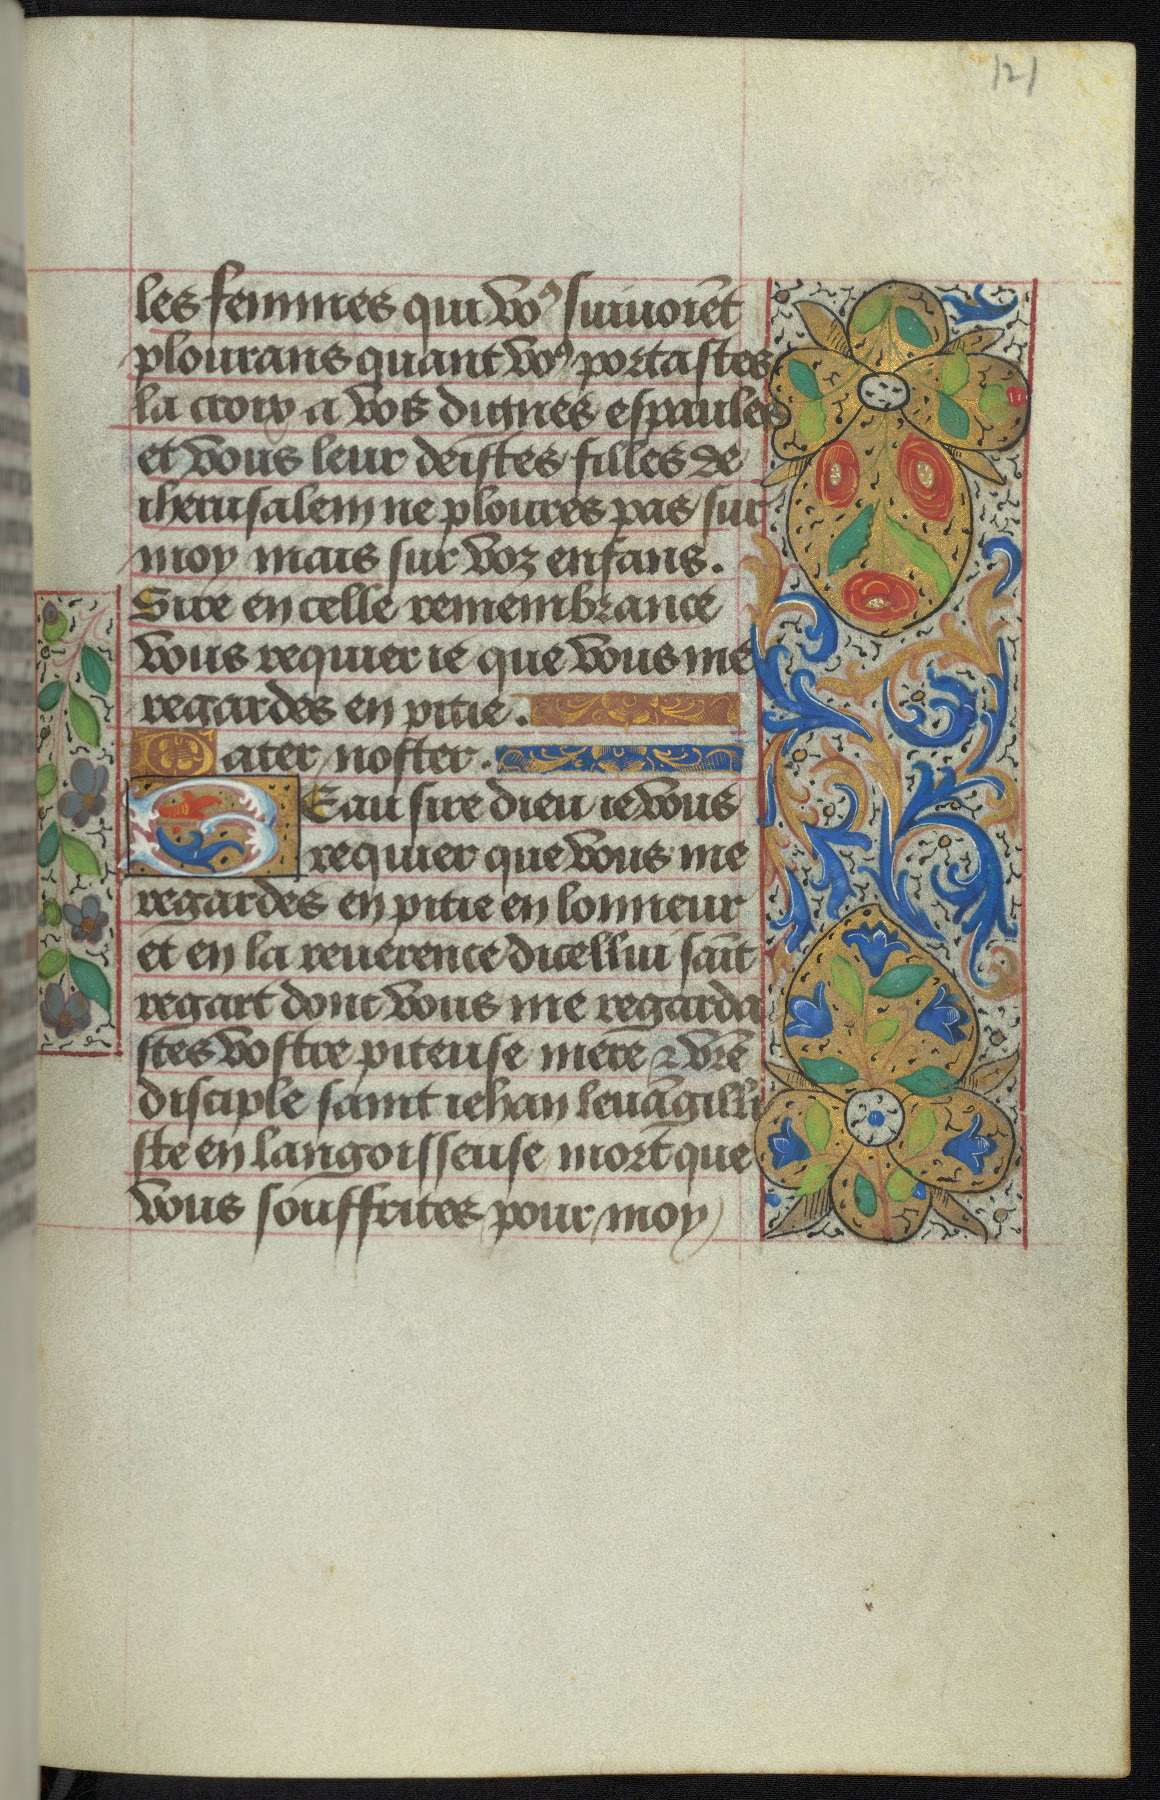 121
les femmes qui vo⁹ suiuoiẽt
plourans quant vo⁹ portastes
la croix a vos dignes espaules
et vous leur deistes filles de
iherusalem ne ploures pas sur
moy mais sur voz enfans.
Sire en celle remembrance
vous requier ie que vous me
regardes en pitie.
Pater noster.
BEau sire dieu ie vous
requier que vous me
regardes en pitie en lonneur
et en la reuerence dicellui sait̃
regart dont vous me regarda
stes vostre piteuse mere ⁊ vr̃e
disciple saint iehan leuãgilli
ste en langoisseuse mort que
vous souffrites pour moy